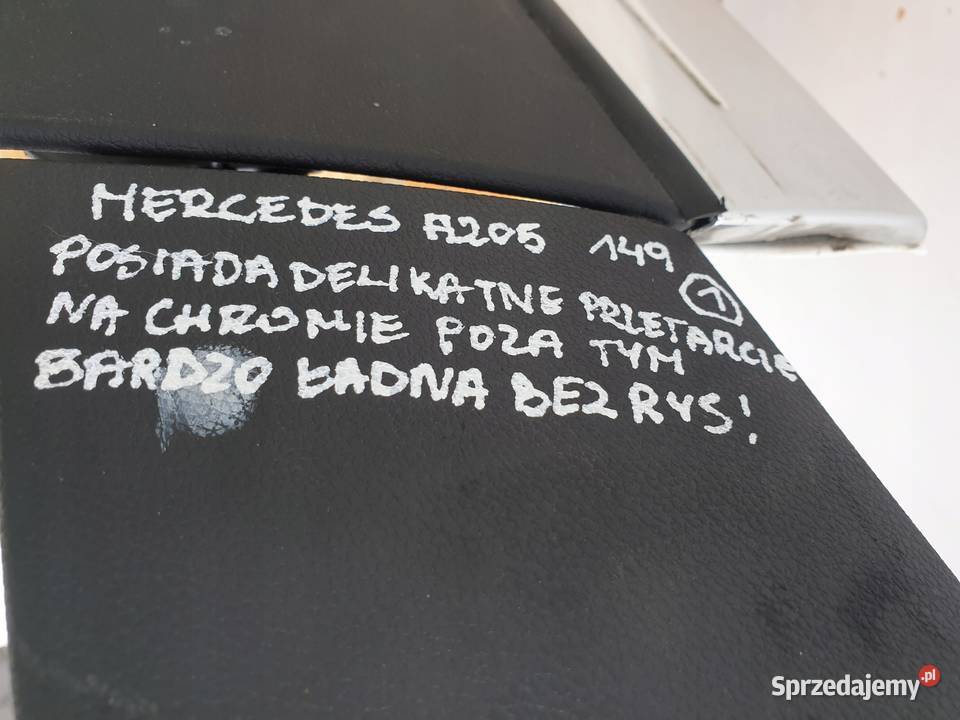 MERCEDES A205 149 1
POSIADA DELIKATNE PRZETARCIE
NA CHROMIE POZA TYM
BARDZO ŁADNA BEZ RYS!
Sprzedajemy.pl